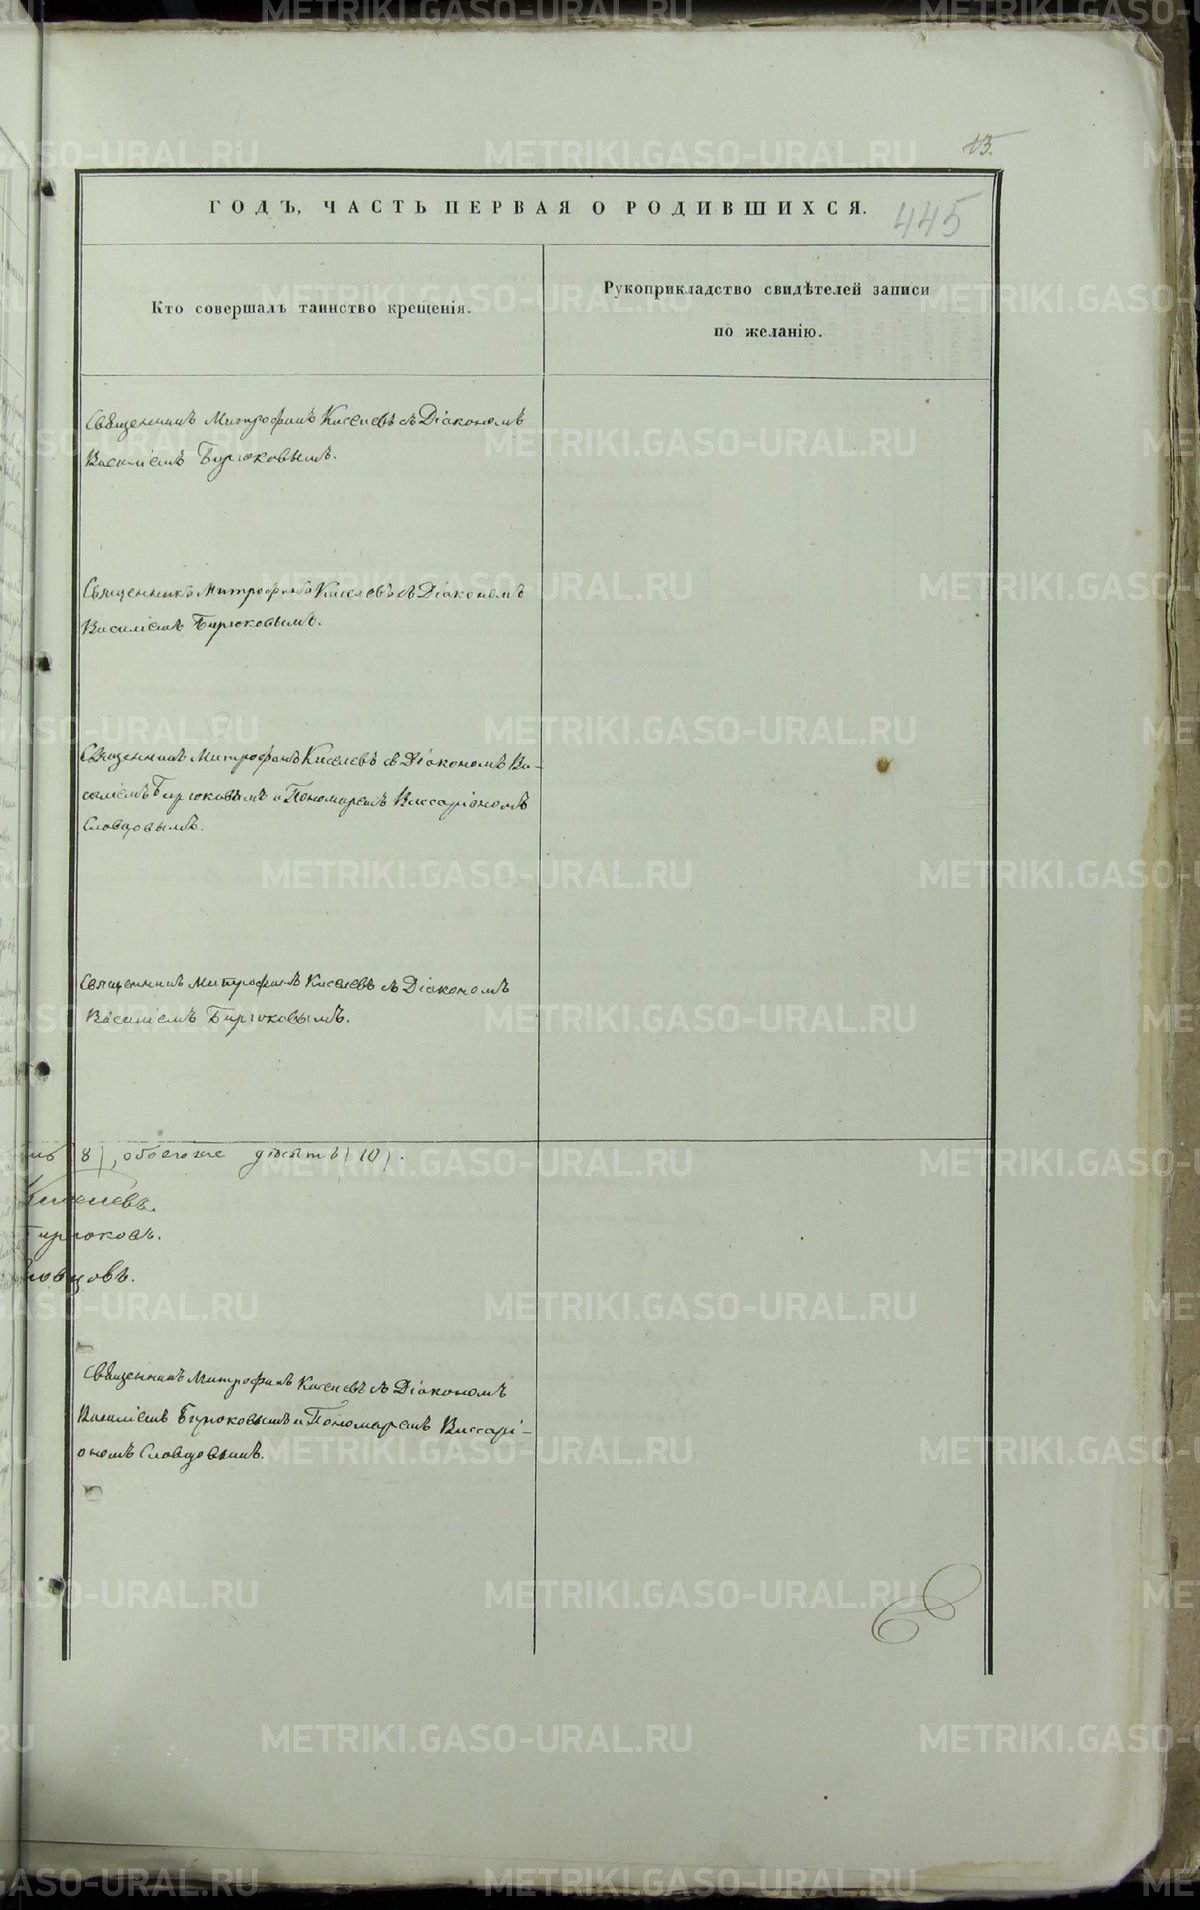 13.
ГОДЪ, ЧАСТЬ ПЕРВАЯ О РОДИВШИХСЯ.
445
Кто совершалъ таинство крещенія.
Рукоприкладство свидѣтелей записи
по желанію.
Священникъ Митрофанъ Киселевъ съ Діакономъ
Василіемъ Бирюковымъ.
Священникъ Митрофанъ Киселевъ съ Діакономъ
Василіемъ Бирюковымъ.
Священникъ Митрофанъ Киселевъ съ Діакономъ Ва-
силіемъ Бирюковымъ и Пономаремъ Виссаріономъ
Словцовымъ.
Священникъ Митрофанъ Киселевъ съ Діакономъ
Василіемъ Бирюковымъ.
(8), обоегоже десять (10).
Киселевъ.
Бирюковъ.
ловцовъ.
Священникъ Митрофанъ Киселевъ съ Діакономъ
Василіемъ Бирюковымъ и Пономаремъ Виссарі-
ономъ Словцовымъ.
METRIKI.GASO-URAL.RU